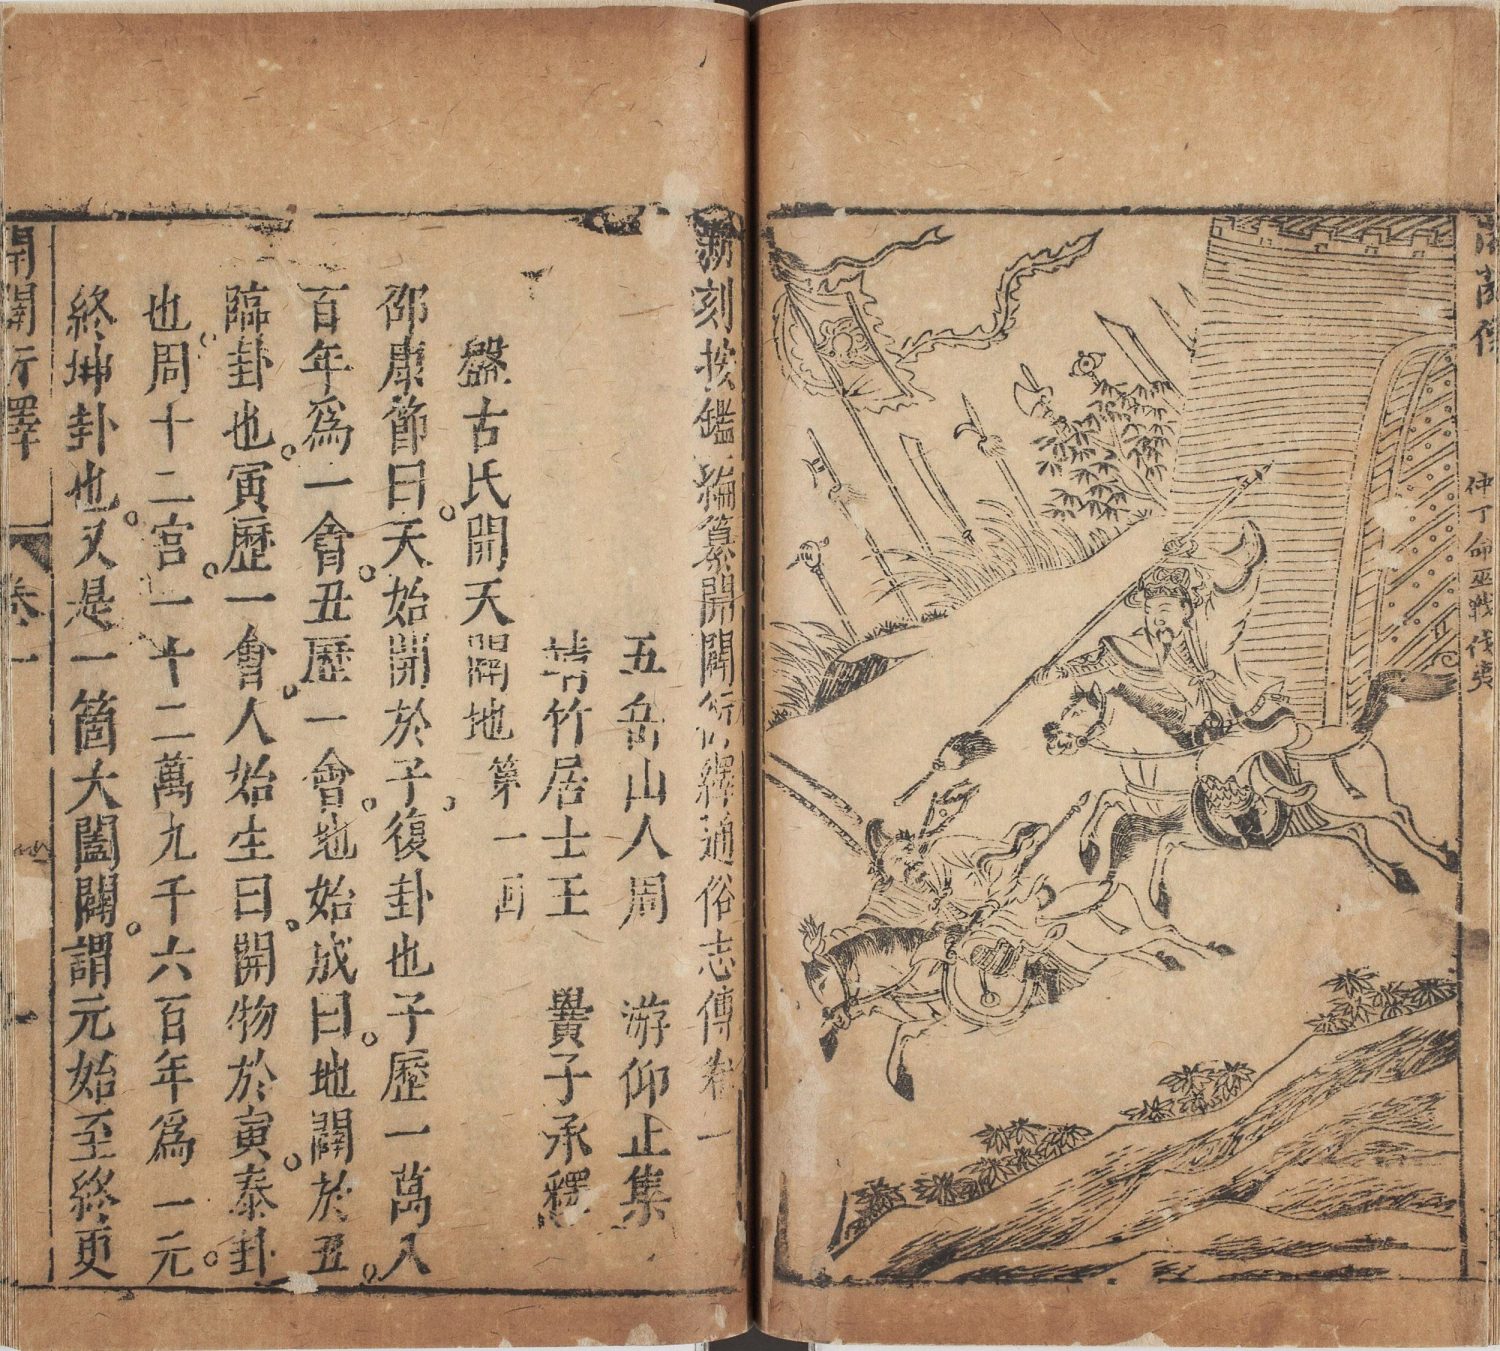 仲丁命巫戰伐夷
新刻按鑑編纂開闢衍繹通俗志傳卷一
五岳山人周 游仰止集
靖竹居士王 黌子承釋
盤古氏開天闢地第一回
邵康節曰天始開於子復卦也子歷一萬八
百年為一會丑歷一會地始成曰地闢於丑
臨卦也寅歷一會人始生曰開物於寅泰卦
也周十二宮一十二萬九千六百年為一元
終坤卦也又是一箇大闔闢謂元始至終更
開闢衍繹 卷一